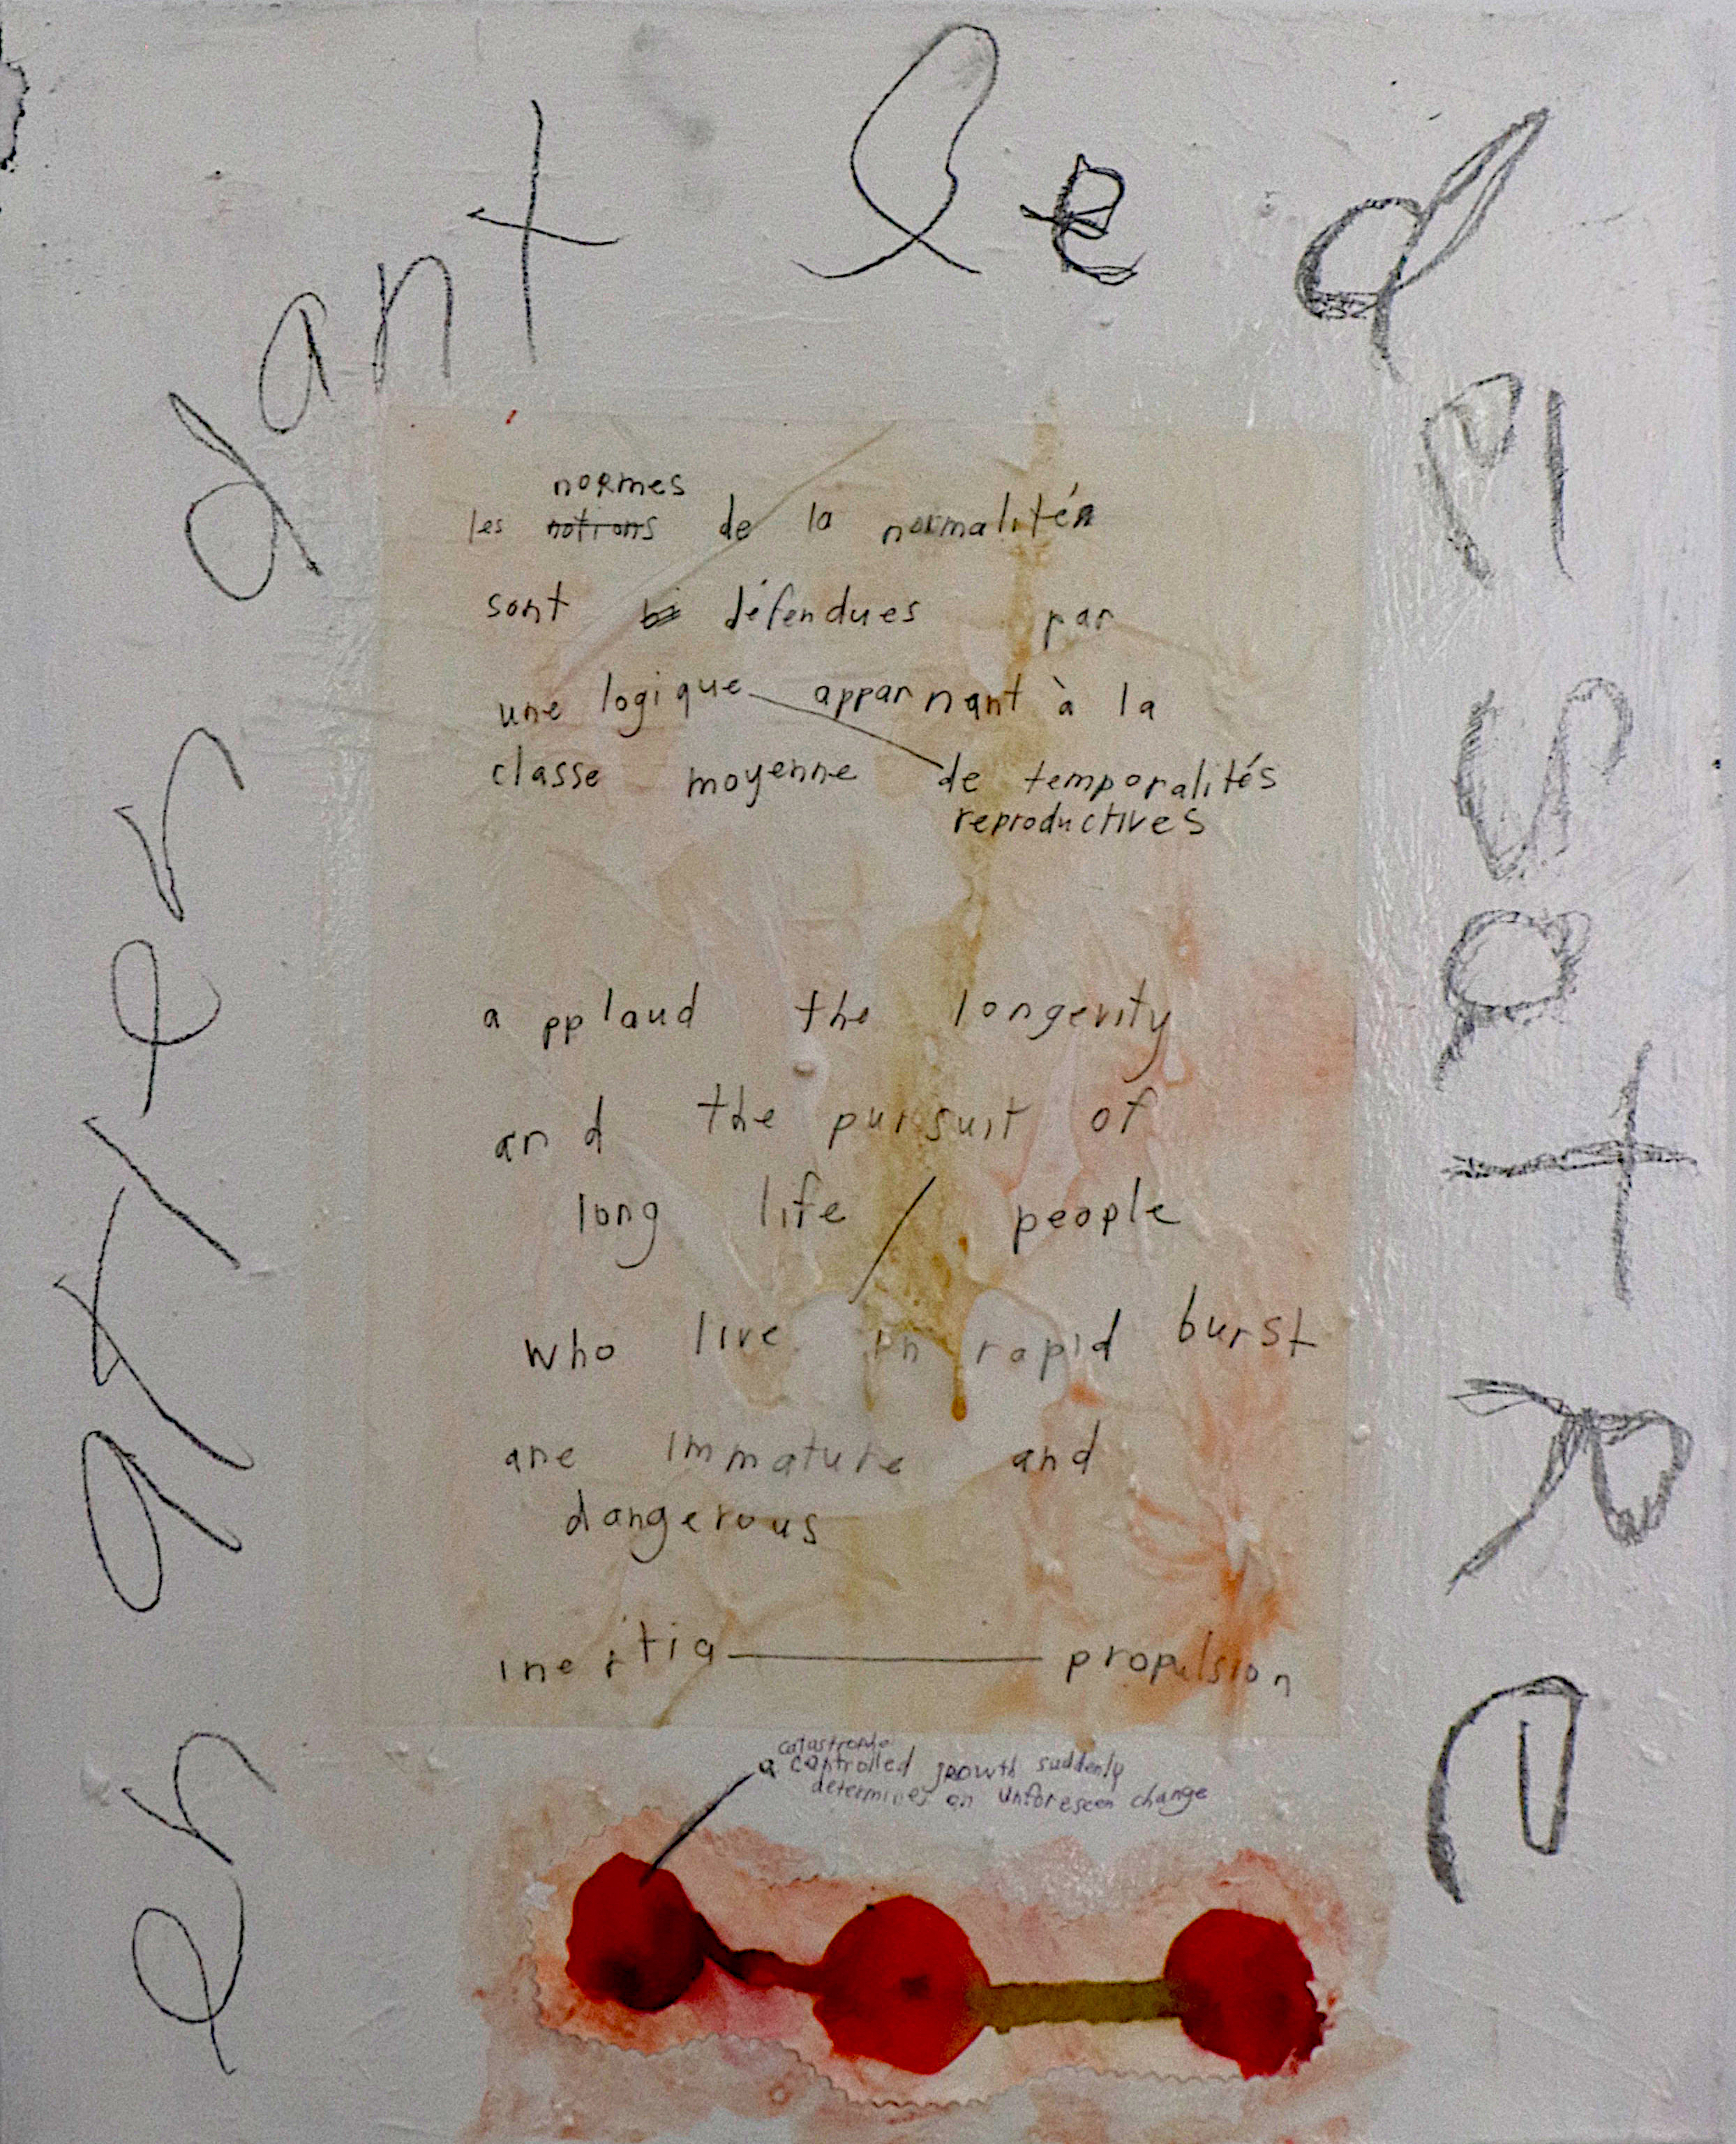 en attendant le désatre
normes
les notions de la normalité
sont défendues par
une logique apparnant à la
classe moyenne de temporalités
reproductives
applaud the longevity
and the pursuit of
long life / people
who live in rapid burst
are immature and
dangerous
inertia — propulsion
catastrophe
a controlled growth suddenly
determines an unforeseen change